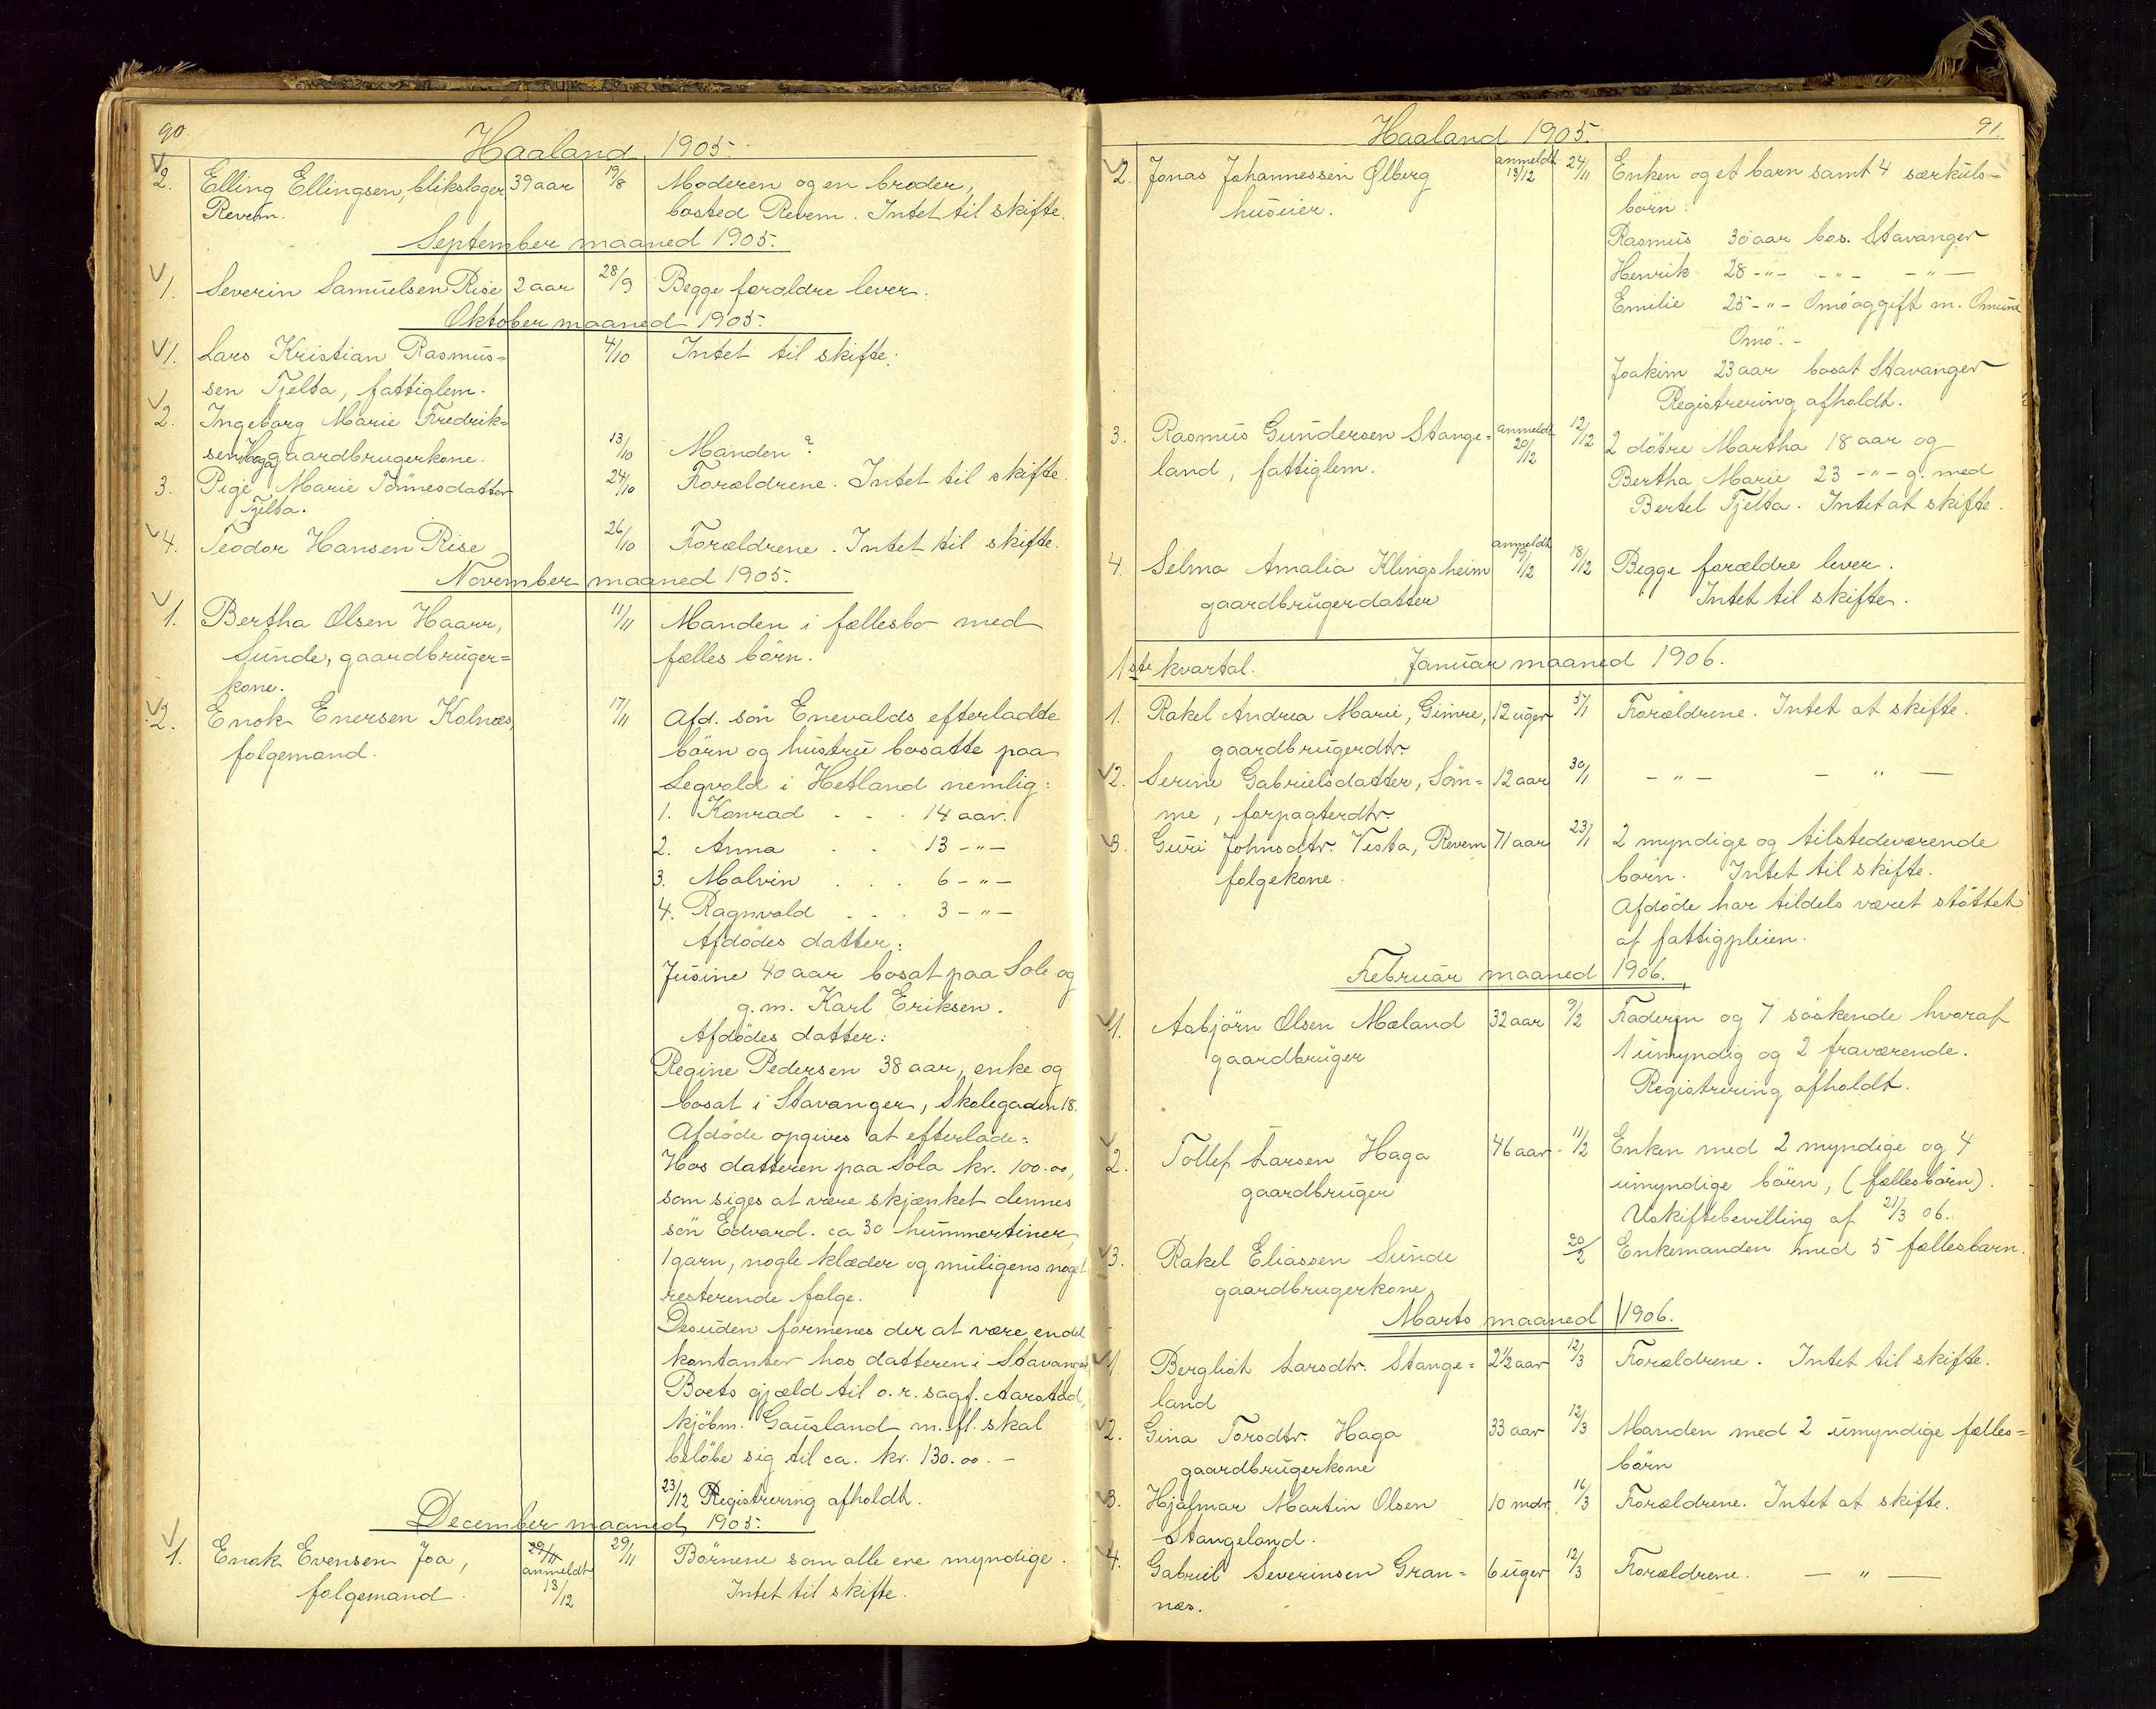 90.
Haaland 1905.
2. Elling Ellingsen, blikslager 39 aar 19/8 Moderen og en broder,
Revem. bosted Revem. Intet til skifte.
September maaned 1905.
1. Severin Samuelsen Rise 2 aar 28/9 Begge forældre lever.
Oktober maaned 1905.
1. Lars Kristian Rasmus= 4/10 Intet til skifte.
sen Tjelta, fattiglem.
2. Ingeborg Marie Fredrik=
sen Haga gaardbrugerkone. 13/10 Manden?
3. Pige Marie Tönnesdatter 24/10 Forældrene. Intet til skifte.
Tjelta.
4. Teodor Hansen Rise 26/10 Forældrene. Intet til skifte.
November maaned 1905.
1. Bertha Olsen Haarr, 11/11 Manden i fællesbo med
Sunde, gaardbruger= fælles börn.
kone.
2. Enok Enersen Kolnæs, 17/11 Afd. sön Enevalds efterladte
folgemand. börn og hustru bosatte paa
Legvold i Hetland nemlig:
1. Konrad . . . 14 aar.
2. Anna . . 13 -"-
3. Malvin . . . 6 -"-
4. Ragnvald . . . 3 -"-
Afdödes datter:
Jusine 40 aar bosat paa Sole og
g.m. Karl Eriksen.
Afdödes datter:
Regine Pedersen 38 aar, enke og
bosat i Stavanger, Skolegaden 18.
Afdöde opgives at efterlade:
Hos datteren paa Sola kr. 100.00,
som siges at være skjænket dennes
sön Edvard. ca 30 hummertiner,
1 garn, nogle klæder og muligens noget
resterende folge.
Desuden formenes der at være endel
kontanter hos datteren i Stavanger
Boets gjæld til o.r. sagf. Aarstad,
kjöbm. Gausland m.fl. skal
belöbe sig til ca. kr. 130.00. -
23/12 Registrering afholdt.
December maaned 1905.
1. Enok Evensen Joa, 29/11 29/11 Börnene som alle ere myndige.
folgemand. anmeldt 13/12 Intet til skifte.
91.
Haaland 1905.
2. Jonas Johannessen Ølberg anmeldt 13/12 24/11 Enken og et barn samt 4 særkuls=
huseier. börn:
Rasmus 30 aar bos. Stavanger
Henrik 28 -"- -"- -"-
Emilie 25 -"- Omö og gift m. Omund
Omö. -
Joakim 23 aar bosat Stavanger
Registrering afholdt.
3. Rasmus Gundersen Stange= anmeldt 20/12 12/12 2 döttre Martha 18 aar og
land, fattiglem. Bertha Marie 23 -"- g. med
Bertel Tjelta. Intet at skifte.
4. Selma Amalia Klingsheim anmeldt 18/12 Begge forældre lever.
gaardbrugerdatter Intet til skifte.
1ste kvartal. Januar maaned 1906.
1. Rakel Andrea Marie, Gimre, 12 uger 5/1 Forældrene. Intet at skifte.
gaardbrugerdtr.
2. Serine Gabrielsdatter, Söm= 12 aar 30/1 -"- -"-
me, forpagterdtr.
3. Guri Johnsdtr. Vesta, Revem 71 aar 23/1 2 myndige og tilstedeværende
folgekone. börn. Intet til skifte.
Afdöde har tildels været stöttet
af fattigpleien.
Februar maaned 1906.
1. Asbjörn Olsen Mæland 32 aar 9/2 Faderen og 7 söskende hvoraf
gaardbruger 1 umyndig og 2 fraværende.
Registrering afholdt.
2. Tollef Larsen Haga 46 aar 11/2 Enken med 2 myndige og 4
gaardbruger umyndige börn, (fællesbörn).
Uskiftebevilling af 21/3 06.
3. Rakel Eliassen Sunde 20/2 Enkemanden med 5 fællesbarn.
gaardbrugerkone
Marts maaned 1906.
1. Bergliot Larsdtr. Stange= 2 1/2 aar 12/3 Forældrene. Intet til skifte.
land
2. Gina Torsdtr. Haga 33 aar 12/3 Manden med 2 umyndige fælles=
gaardbrugerkone börn
3. Hjalmar Martin Olsen 10 mdr. 16/3 Forældrene. Intet at skifte.
Stangeland.
4. Gabriel Severinsen Gran= 6 uger 12/3 Forældrene. -"-
næs.